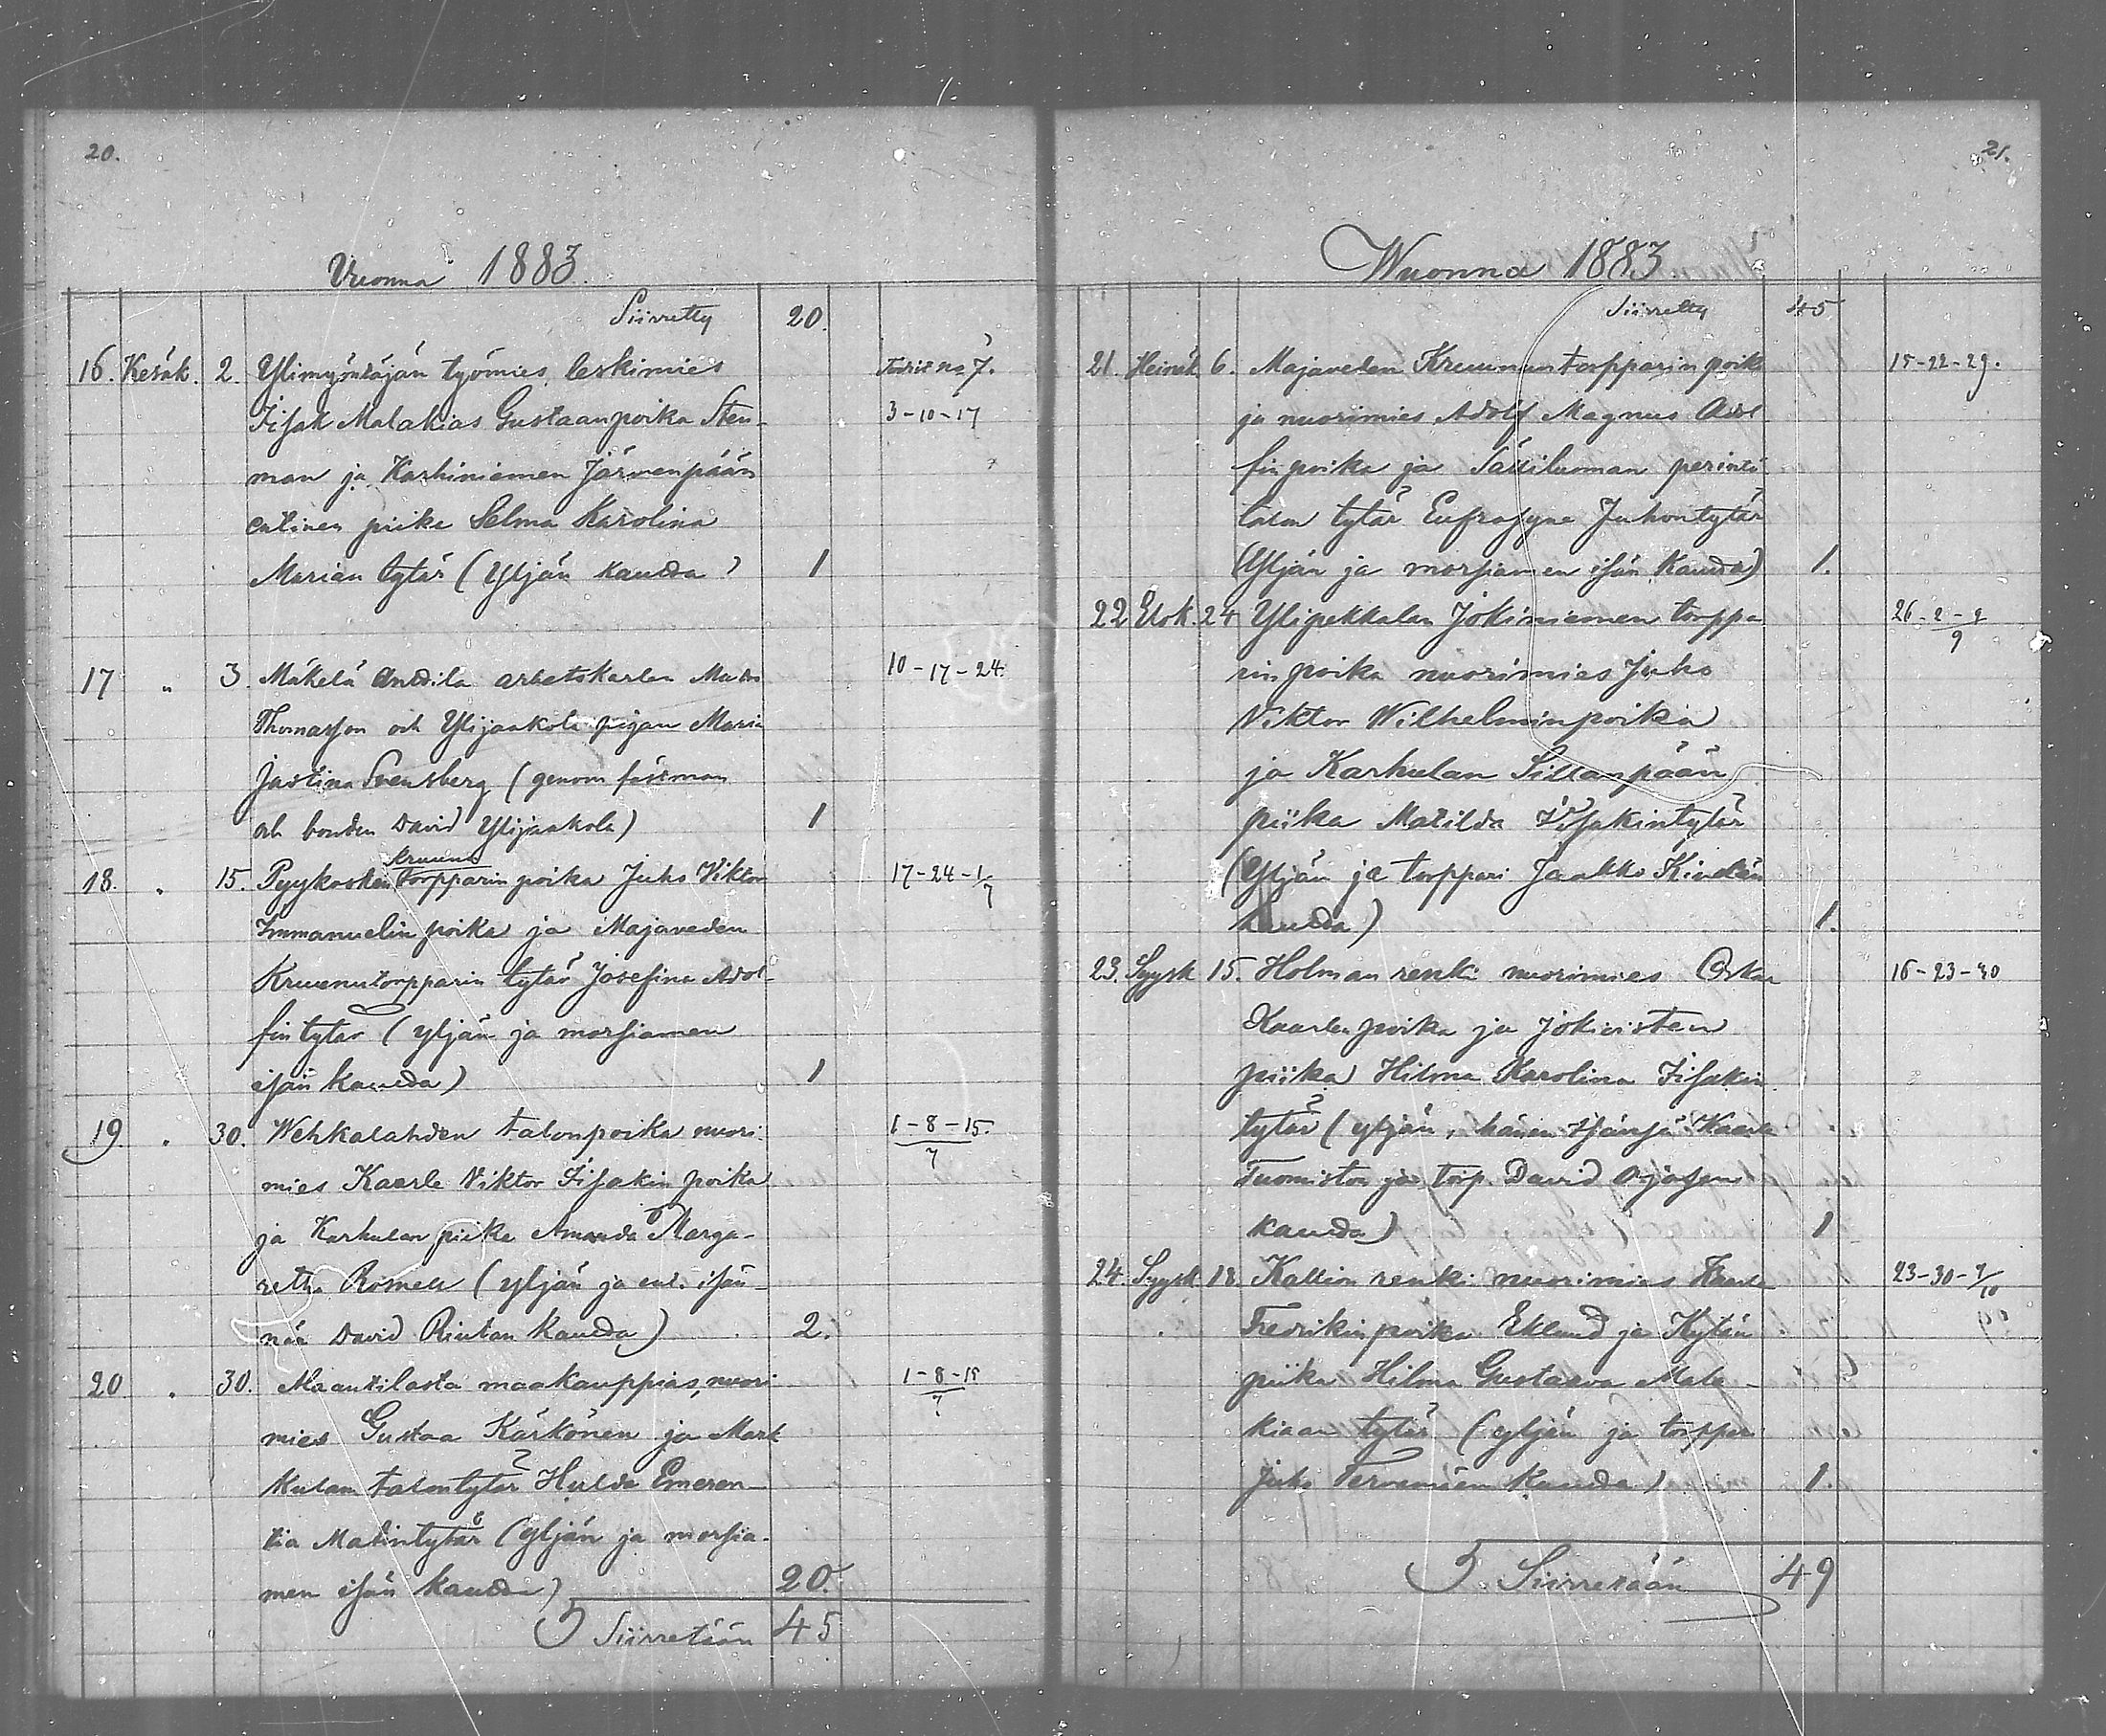 20.
Vuonna 1883.
Siirretty 20.
16. Kesäk. 2. Ylimynttäjän työmies, leskimies No 7.
Iisak Malakias Gustaanpoika Sten- 3-10-17
man ja Karhiniemen Järvenpään
entinen piika Selma Karolina
Marian tytär (Yljän kautta) 1
17 " 3. Mäkelä Anttila arbetskarlen Matts 10-17-24.
Thomasson och Ylijaakola pigan Maria
Justina Svensberg (genom fästman
och bonden David Ylijaakola) 1
kruunu
18. " 15. Pyykosken torpparin poika Juho Viktor 17-24-1/7
Immanuelin poika ja Majaveden
Kruununtorpparin tytär Josefina Adol-
fintytär (yljän ja morsiamen
isän kautta) 1
19. " 30. Wehkalahden talonpoika nuori 1-8-15./7
mies Kaarle Viktor Iisakin poika
ja Karhulan piika Amanda Marga-
retha Romell (yljän ja ent. isän-
nän David Rintan kautta) 2.
20 " 30. Maantilasta maakauppias, nuori 1-8-15/7
mies Gustaa Kärkönen ja Mark
kulan talontytär Hulda Emeren-
tia Matintytär (yljän ja morsia-
men isän kautta) 20.
Siirretään 45
21.
Wuonna 1883
Siirretty 45
21. Heinäk. 6. Majaveden Kruununtorpparin poika 15-22-29.
ja nuorimies Adolf Magnus Adol
fin poika ja Sässiluoman perintö
talon tytär Eufrosyne Juhontytär
(Yljän ja morsiamen isän kautta) 1.
22 Elok. 24 Ylipekkalan Jokiniemen torppa 26-2-9/9
rin poika nuorimies Juho
Viktor Wilhelminpoika
ja Karhulan Sillanpään
piika Matilda Iisakintytär
(Yljän ja torppari Jaakko
kautta) 1.
23. Syysk 15. Holman renki nuorimies Oskar 16-23-30
Kaarlen poika ja Jokivisten
piika Hilma Karolina Iisakin
tytär (yljän, hänen isänsä Kaarle
Tuomiston ja torp. David Ojasen
kautta) 1
24. Syysk 18. Kallion renki nuorimies Kaarle 23-30-7/10
Fredrikin poika Eklund ja Kylän
piika Hilma Gustaava Mala-
kiaan tytär (yljän ja torppari
Juho Tervamäen kautta) 1.
Siirretään 49